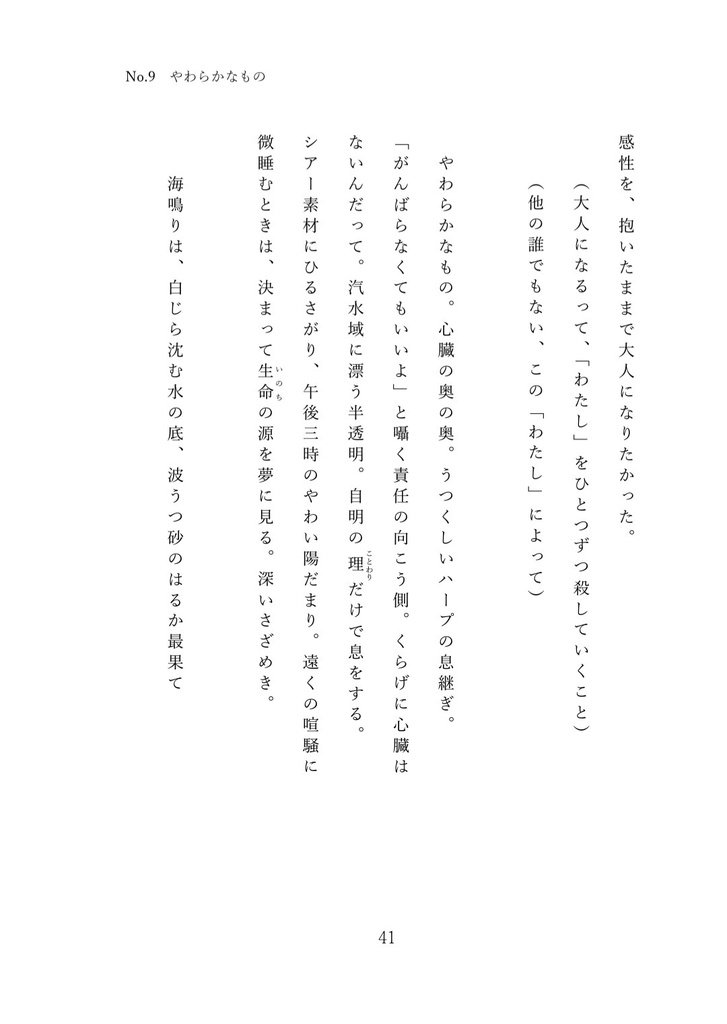 No.9　やわらかなもの
感性を、抱いたままで大人になりたかった。
（大人になるって、「わたし」をひとつずつ殺していくこと）
（他の誰でもない、この「わたし」によって）
やわらかなもの。心臓の奥の奥。うつくしいハープの息継ぎ。
「がんばらなくてもいいよ」と囁く責任の向こう側。くらげに心臓は
ないんだって。汽水域に漂う半透明。自明の理ことわりだけで息をする。
シアー素材にひるさがり、午後三時のやわい陽だまり。遠くの喧騒に
微睡むときは、決まって生命いのちの源を夢に見る。深いさざめき。
海鳴りは、白じら沈む水の底、波うつ砂のはるか最果て
41